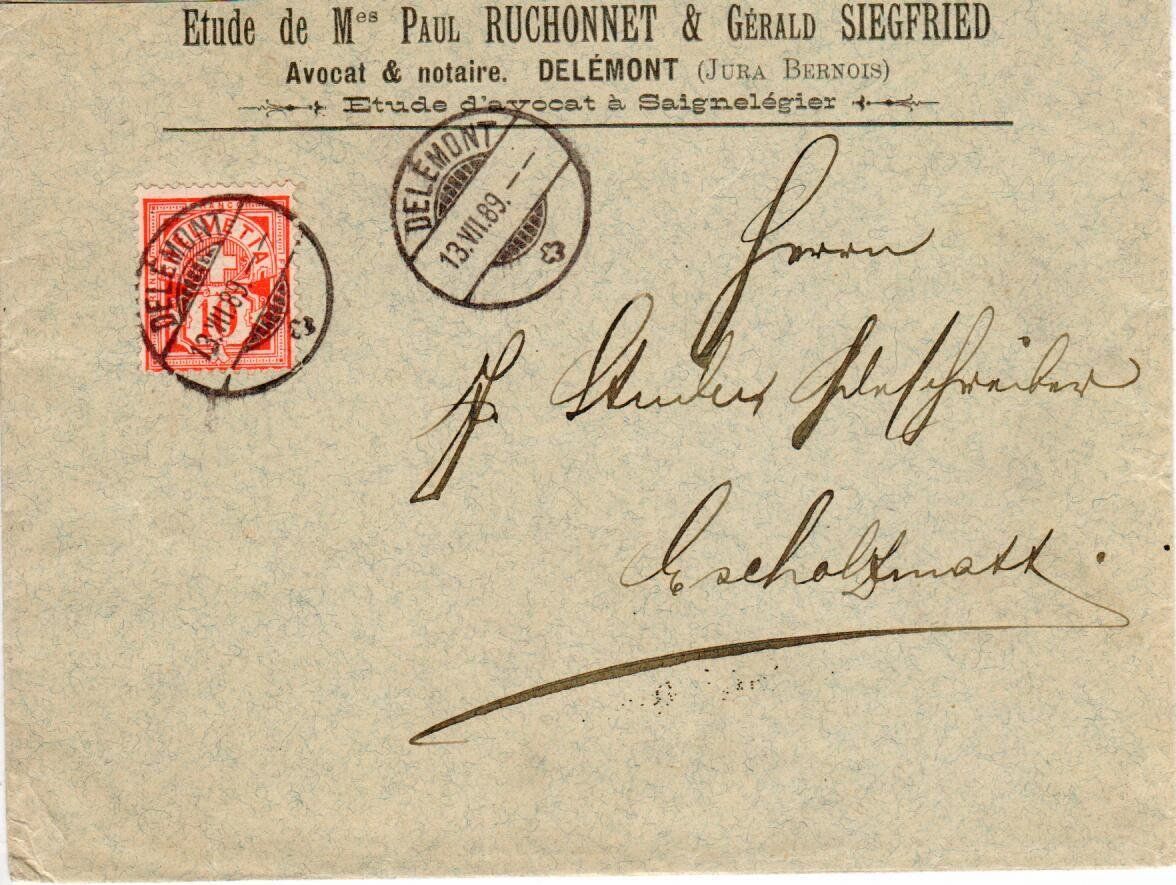 Etude de Mes PAUL RUCHONNET & GÉRALD SIEGFRIED
Avocat & notaire. DELÉMONT (JURA BERNOIS)
Etude d'avocat à Saignelégier
DELÉMONT
13.VII.89.
FRANCO
HELVETIA
10
DELÉMONT
13.VII.89
Herrn
J. Studer, Gdeschreiber
Escholzmatt.